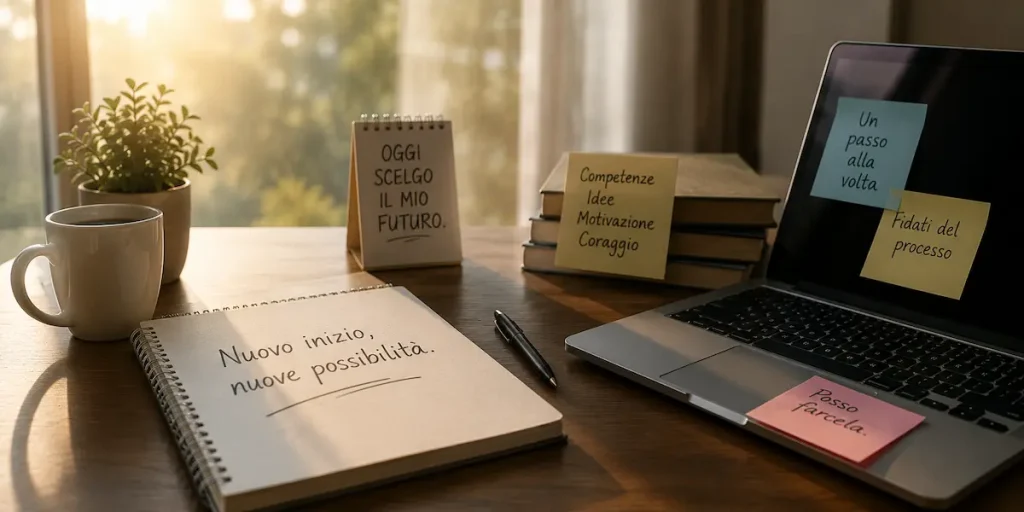 OGGI
SCELGO
IL MIO
FUTURO.
Competenze
Idee
Motivazione
Coraggio
Un
passo
alla
volta
Fidati del
processo
Nuovo inizio,
nuove possibilità.
Posso
farcela.